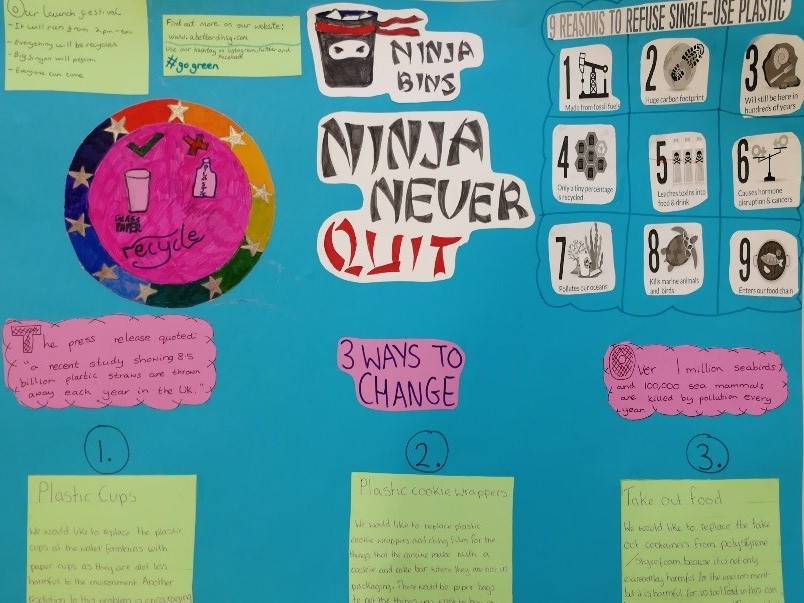 Our launch festival
- It will run from 2pm - 6pm
- Everything will be recycled
- Everyone can come
Find out more on our website:
Use our hashtag on Instagram, Twitter and
Facebook
#gogreen
NINJA
BINS
NINJA
NEVER
QUIT
9 REASONS TO REFUSE SINGLE-USE PLASTIC
1
Made from fossil fuels
2
Huge carbon footprint
3
Will still be here in
hundreds of years
4
Only a tiny percentage
is recycled
5
Leaches toxins into
food & drink
6
Causes hormone
disruption & cancers
7
Pollutes our oceans
8
Kills marine animals
and birds
9
Enters our food chain
GLASS
PAPER
PLASTIC
recycle
The press release quoted:
"a recent study showing 8.5
billion plastic straws are thrown
away each year in the UK."
3 WAYS TO
CHANGE
Over 1 million seabirds
and 100,000 sea mammals
are killed by pollution every
year
1.
2.
3.
Plastic Cups
We would like to replace the plastic
cups at the water fountains with
paper cups as they are alot less
harmful to the environment. Another
solution to this problem is encouraging
Plastic cookie wrappers
We would like to replace plastic
cookie wrappers and cling film for the
things that the canteen make with a
cookie and cake bar where they are not in
packaging. There would be paper bags
to put the things you want to buy in
Take out food
We would like to replace the take
out containers from polystyrene
/ Styrofoam because it is not only
harmful for the environment
but it is harmful for us too! Food in this can